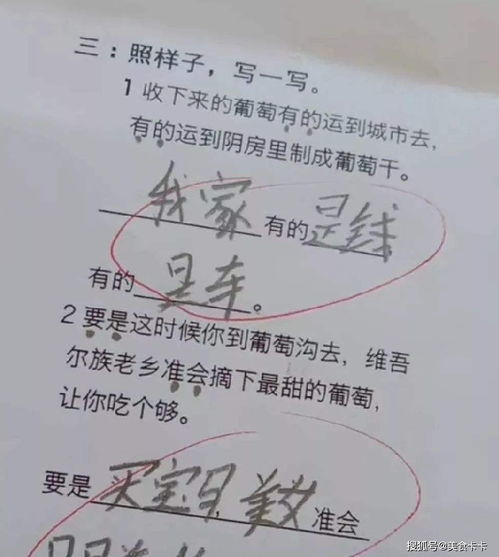 三：照样子，写一写。
1 收下来的葡萄有的运到城市去，
有的运到阴房里制成葡萄干。
我家有的是钱
有的是车。
2 要是这时候你到葡萄沟去，维吾
尔族老乡准会摘下最甜的葡萄，
让你吃个够。
要是买宝马，美女准会
搜狐号@美食卡卡